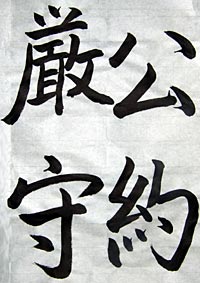 公約
厳守